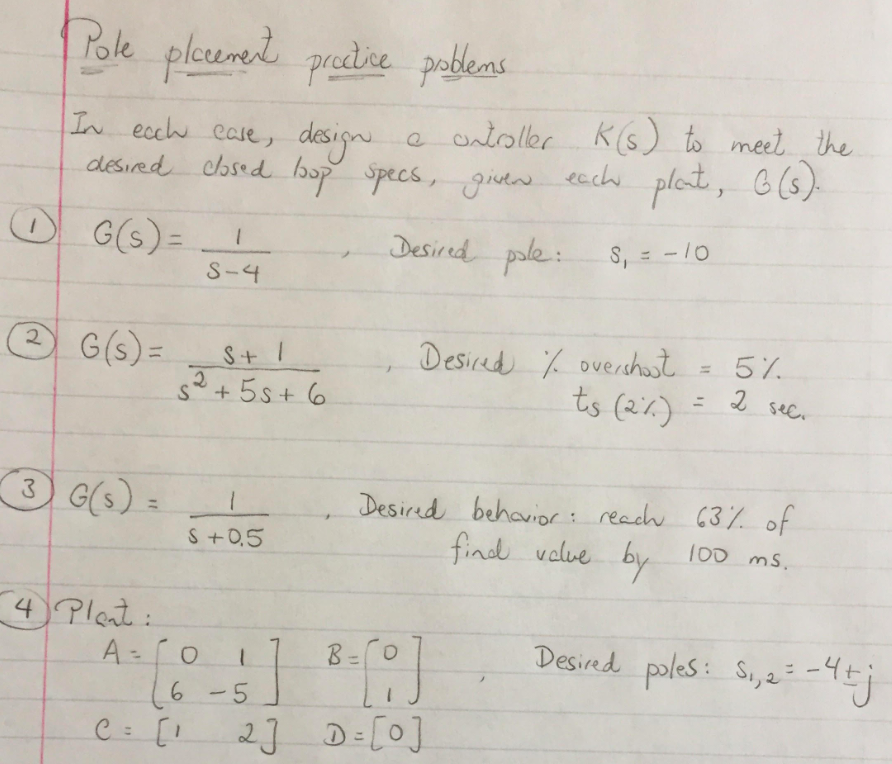 Pole placement practice problems
In each case, design a controller K(s) to meet the
desired closed loop specs, given each plant, G(s).
① G(s) = 1/(s-4) , Desired pole: s₁ = -10
② G(s) = (s+1)/(s²+5s+6) , Desired % overshoot = 5%
ts (2%) = 2 sec.
③ G(s) = 1/(s+0.5) , Desired behavior: reach 63% of
final value by 100 ms.
④ Plant:
A = [0 1; 6 -5] B = [0; 1] , Desired poles: s₁,₂ = -4±j
C = [1 2] D = [0]